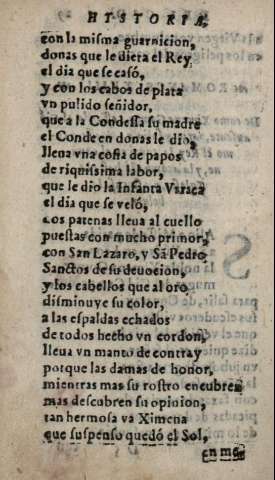 HISTORIA
con la misma guarnicion,
donas que le diera el Rey
el dia que se casó,
y con los cabos de plata
vn pulido señidor,
que a la Condessa su madre
el Conde en donas le dio,
lleua vna cofia de papos
de riquissima labor,
que le dio la Infanta Vrraca
el dia que se veló,
Los patenas lleua al cuello
puestas con mucho primor,
con San Lazaro, y Sã Pedro
Sanctos de su deuocion,
y los cabellos que al oro
disminuye su color,
a las espaldas echados
de todos hecho vn cordon,
lleua vn manto de contray
porque las damas de honor,
mientras mas su rostro encubrẽ
mas descubren su opinion,
tan hermosa va Ximena
que suspenso quedó el Sol,
en me